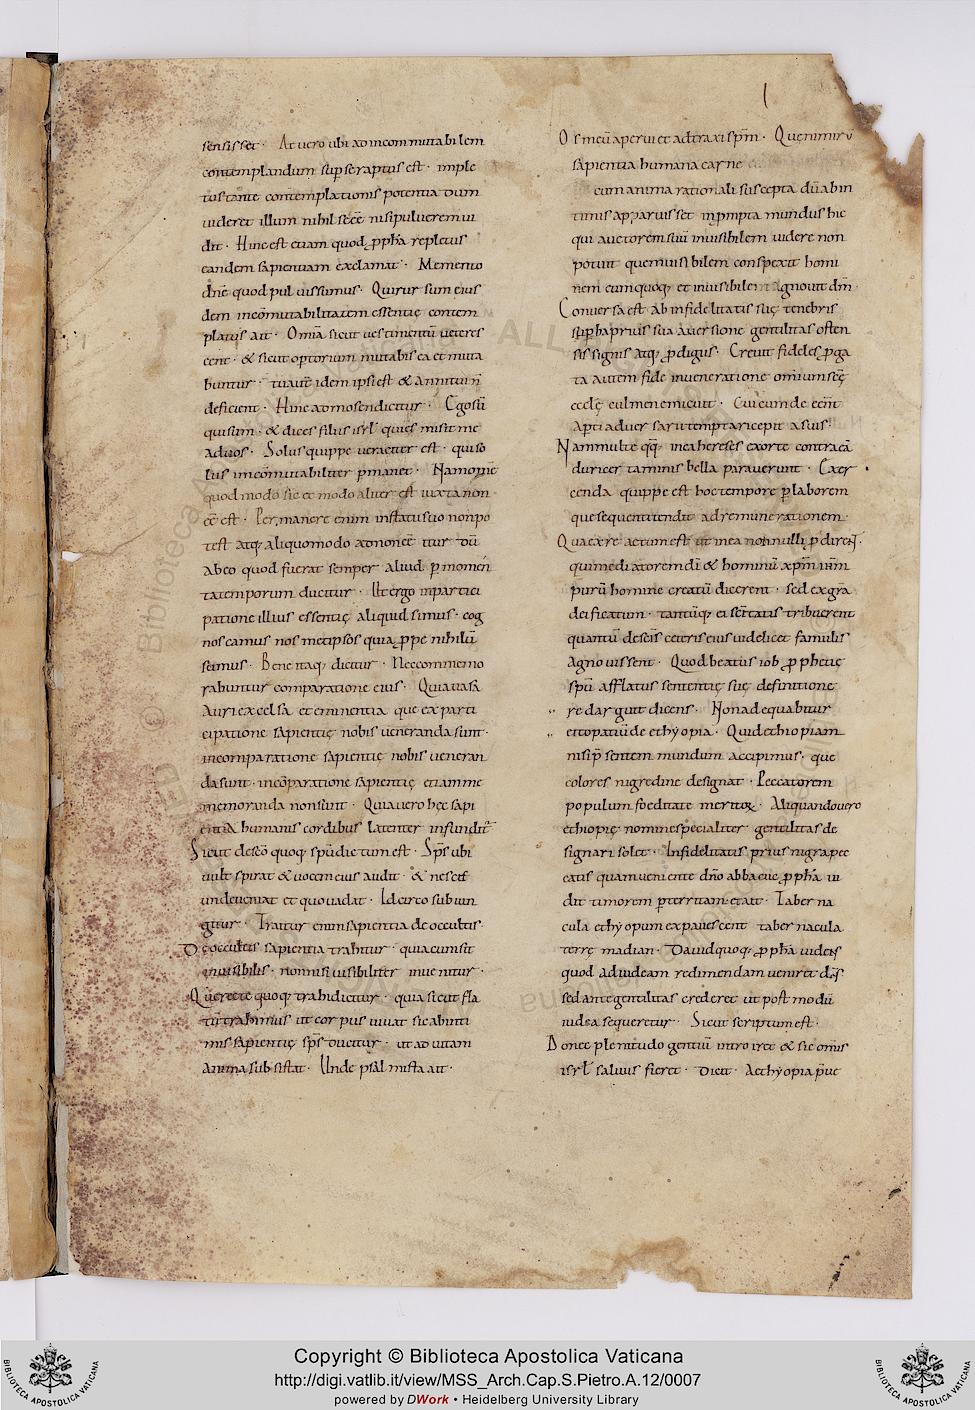 sensisset · At uero ubi ad incommutabilem
contemplandum sup se raptus est · imple
tus tantę contemplationis potentia dum
uideret illum nihil se ee nisi puluerem ui
dit · Hinc est etiam quod ꝓpha repletus
eandem sapientiam exclamat · Memento
dne quod puluis sumus · Qui rursum eius
dem incōmutabilitatem essentię contem
platus ait · Omīa sicut uestimentū ueteres
cent · & sicut optorium mutabis ea et muta
buntur · tu autē idem ipse est & anni tui n̄
deficient · Hinc ad mosen dicitur · Ego sū
qui sum · & dices filiis isrl qui est misit me
ad uos · Solus quippe ueraciter est · qui so
lus incōmutabiliter ꝑmanet · Nam omē
quod modo sic et modo aliter est iuxta non
eē est · Permanere enim in statu suo non po
test atq; aliquomodo ad non eē itur dū
ab eo quod fuerat semper aliud ꝑ momen
ta temporum ducitur · Ut ergo in partici
patione illius essentię aliquid simus · cog
noscamus nos metipsos quia ꝓpe nihilū
sumus · Bene itaq; dicitur · Nec commemo
rabuntur comparatione eius · Quia uasa
auri excelsa et eminentia que ex parti
cipatione sapientię nobis ueneranda sunt ·
in comparatione sapientię nobis ueneran
da sunt · in cōparatione sapientię etiam me
memoranda non sunt · Quia uero hęc sapi
entia humanis cordibus latenter infundit
Sicut de scō quoq; spū dictum est · Sps ubi
uult spirat & uocem eius audit · & nescis
unde ueniat et quo uadat · Idcirco subiun
gitur · Trahitur enim sapientia de occultis ·
Dę occultis sapientia trahitur · quia cum sit
inuisibilis · non nisi uisibiliter inuenitur ·
Quę recte quoq; trahi dicitur · quia sicut fla
tū trahimus ut corpus uiuat sic ab inti
mis sapientię sps ducitur · ut ad uitam
anima subsistat · Unde psalmista ait ·
I
Os meū aperui et adtraxi spm · Quę nimirū
sapientia humana carne
cum anima rationali suscepta dū ab in
timis apparuisset in ꝓmptu mundus hic
qui auctorem suū inuisibilem uidere non
potuit quem uisibilem conspexit homi
nem eumquoq; et inuisibilem agnouit dm
Conuersa est ab infidelitatis suę tenebris
supba prius sua auersione gentilitas osten
sis signis atq; ꝓdigiis · Creuit fidelis ꝓga
ta autem fide in ueneratione omium scę
ecclę culmen emicuit · Cui eum deceret
Apti aduersarii temptari cepit a suis
Nam multe qq; in ea hereses exorte contra eā
durioris certaminis bella parauerunt · Exer
cenda quippe est hoc tempore ꝑ laborem
que sequenti tendit ad remunerationem ·
Qua ex re actum est ut in ea nonnulli ꝓdirent
qui mediatorem di & hominū xpm ihm
purū homine creatū dicerent · sed ex gra
deificatum · tantūq; ei scītatis tribuerent
quantū de scis ceteris eius uidelicet famulis
agnouissent · Quod beatus iob ꝓphetię
spū afflatus sententię suę definitione
redarguit dicens · Non adequabitur
ei topatiū de ethyopia · Quid ethiopiam
nisi psentem mundum accipimus · que
colores nigredine designat · Peccatorem
populum foeditate meritoꝝ · Aliquando uero
ethiopię nomine specialiter gentilitas de
signari solet · Infidelitatis prius nigra pec
catis quam ueniente dno abbacuc ꝓpha ui
dit timorem ꝑterritam · et ait · Taberna
cula ethyopum expauescent tabernacula
terrę madian · Dauid quoq; ꝓpha uidens
quod ad iudeam redimendam ueniret ds
sed ante gentilitas crederet ut post modū
iudea sequeretur · Sicut scriptum est ·
Donec plenitudo gentiū introiret & sic omis
isrl saluus fieret · Dicit · Aethyopia pue
Copyright © Biblioteca Apostolica Vaticana
http://digi.vatlib.it/view/MSS_Arch.Cap.S.Pietro.A.12/0007
powered by DWork • Heidelberg University Library
BIBLIOTECA APOSTOLICA VATICANA
BIBLIOTECA APOSTOLICA VATICANA